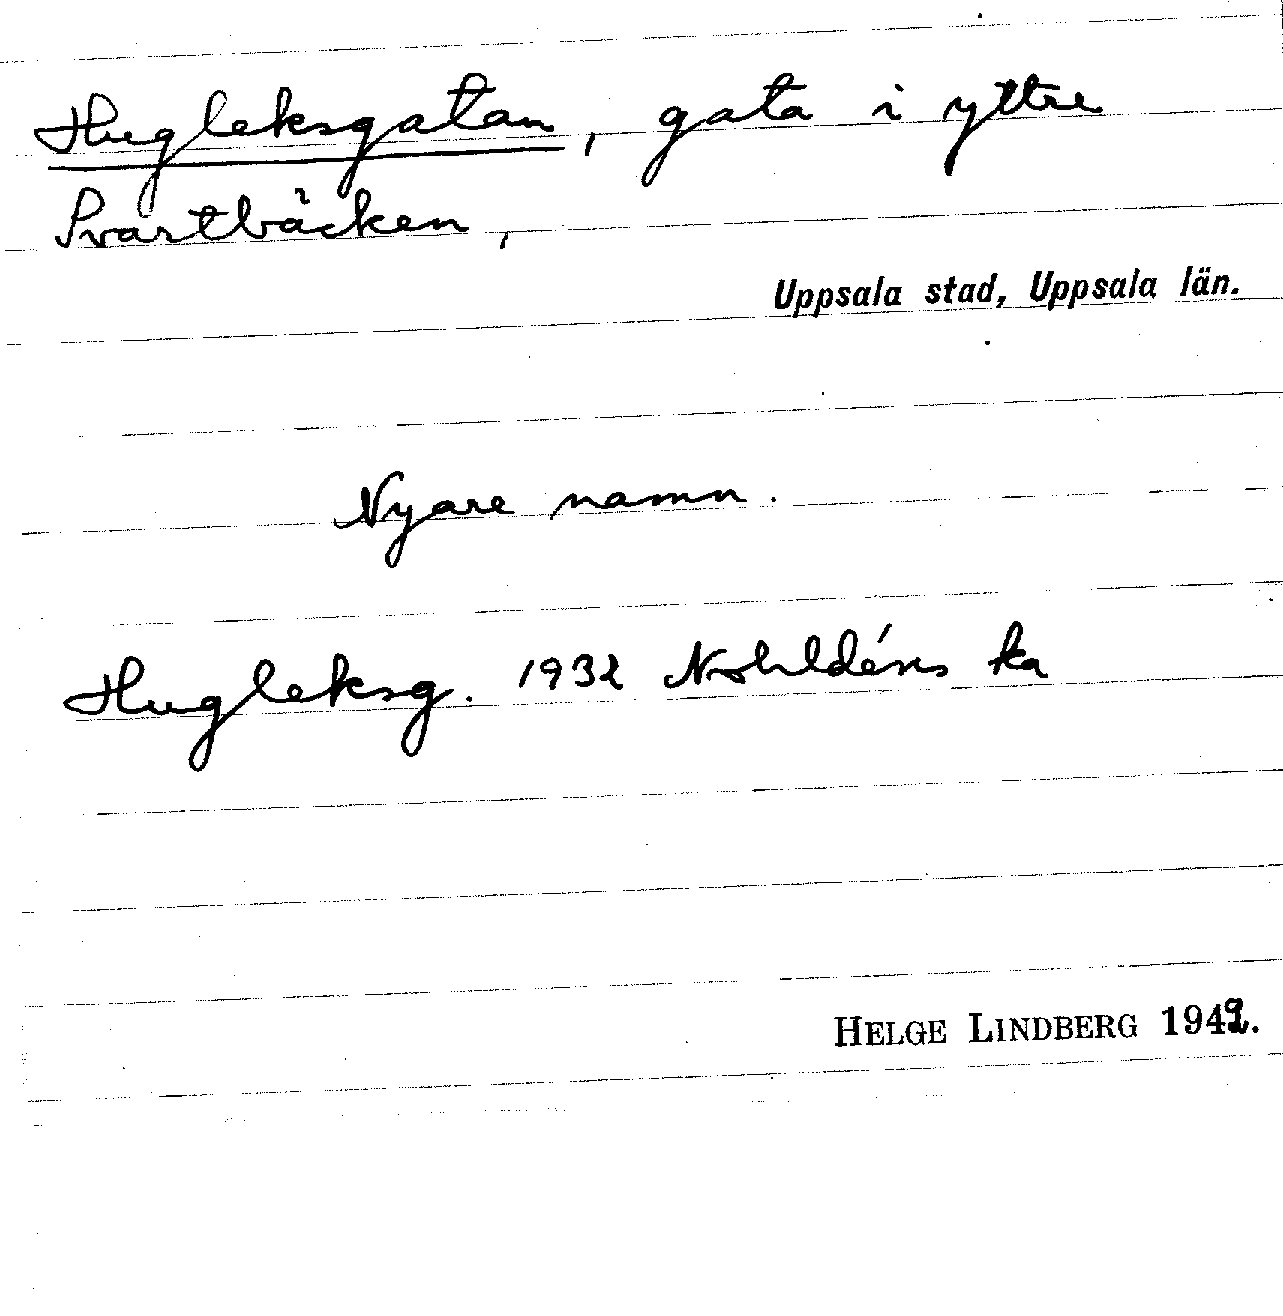 Hugleksgatan, gata i yttre
Svartbäcken,
Uppsala stad, Uppsala län.
Nyare namn.
Hugleksg. 1932 Nohldéns ka
HELGE LINDBERG 1949.